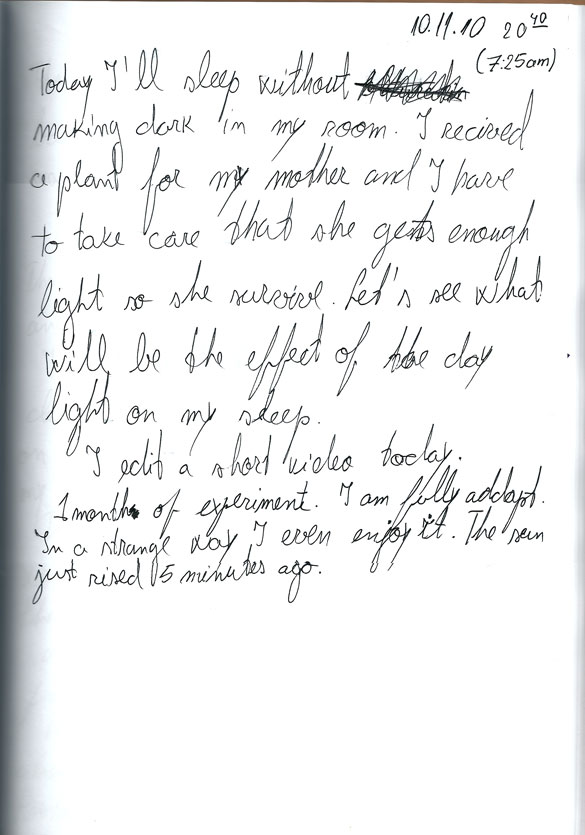 10.11.10 20 40
(7:25am)
Today I'll sleep without
making dark in my room. I recived
a plant for my mother and I have
to take care that she gets enough
light so she survive. Let's see what
will be the effect of the day
light on my sleep.
I edit a short video today.
1 month of experiment. I am fully addapt.
In a strange way I even enjoy it. The sun
just rised 15 minutes ago.